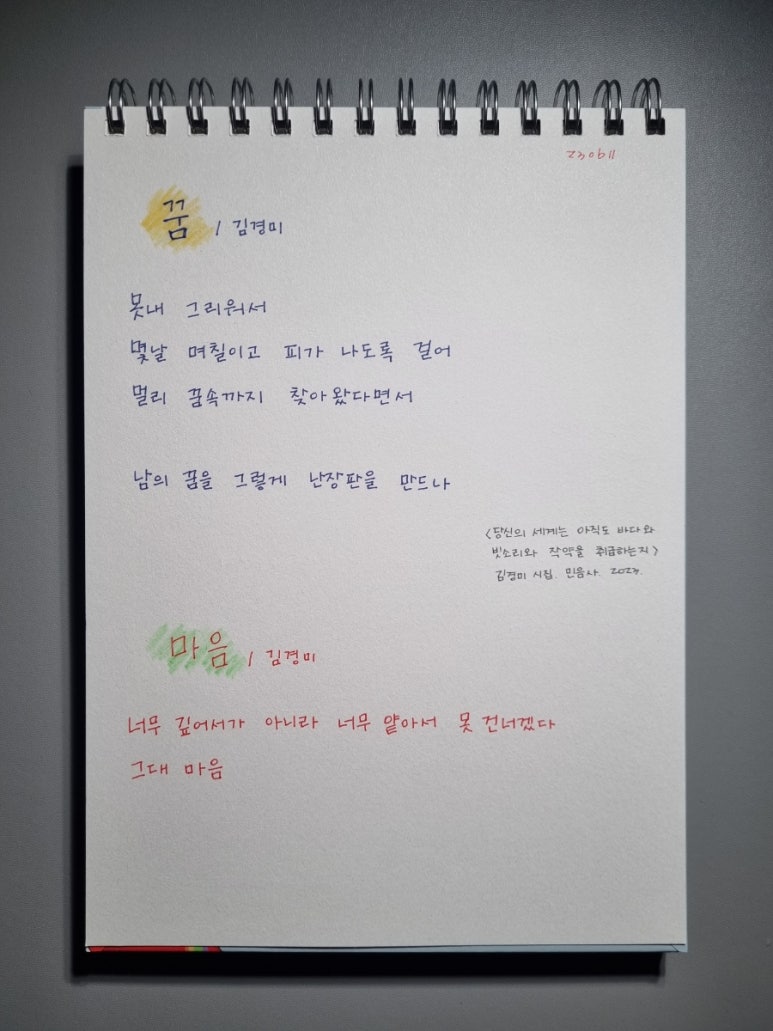 230611
꿈 / 김경미
못내 그리워서
몇날 며칠이고 피가 나도록 걸어
멀리 꿈속까지 찾아왔다면서
남의 꿈을 그렇게 난장판을 만드나
<당신의 세계는 아직도 바다와
빗소리와 작약을 취급하는지>
김경미 시집. 민음사. 2023.
마음 / 김경미
너무 깊어서가 아니라 너무 얕아서 못 건너겠다
그대 마음